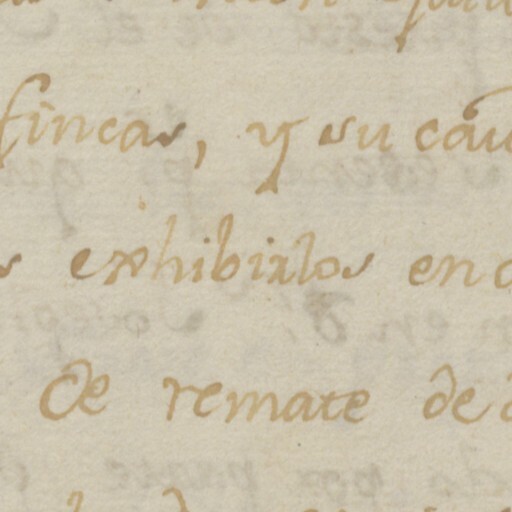 fincas, y su cau
s exhibirlos en
de remate de